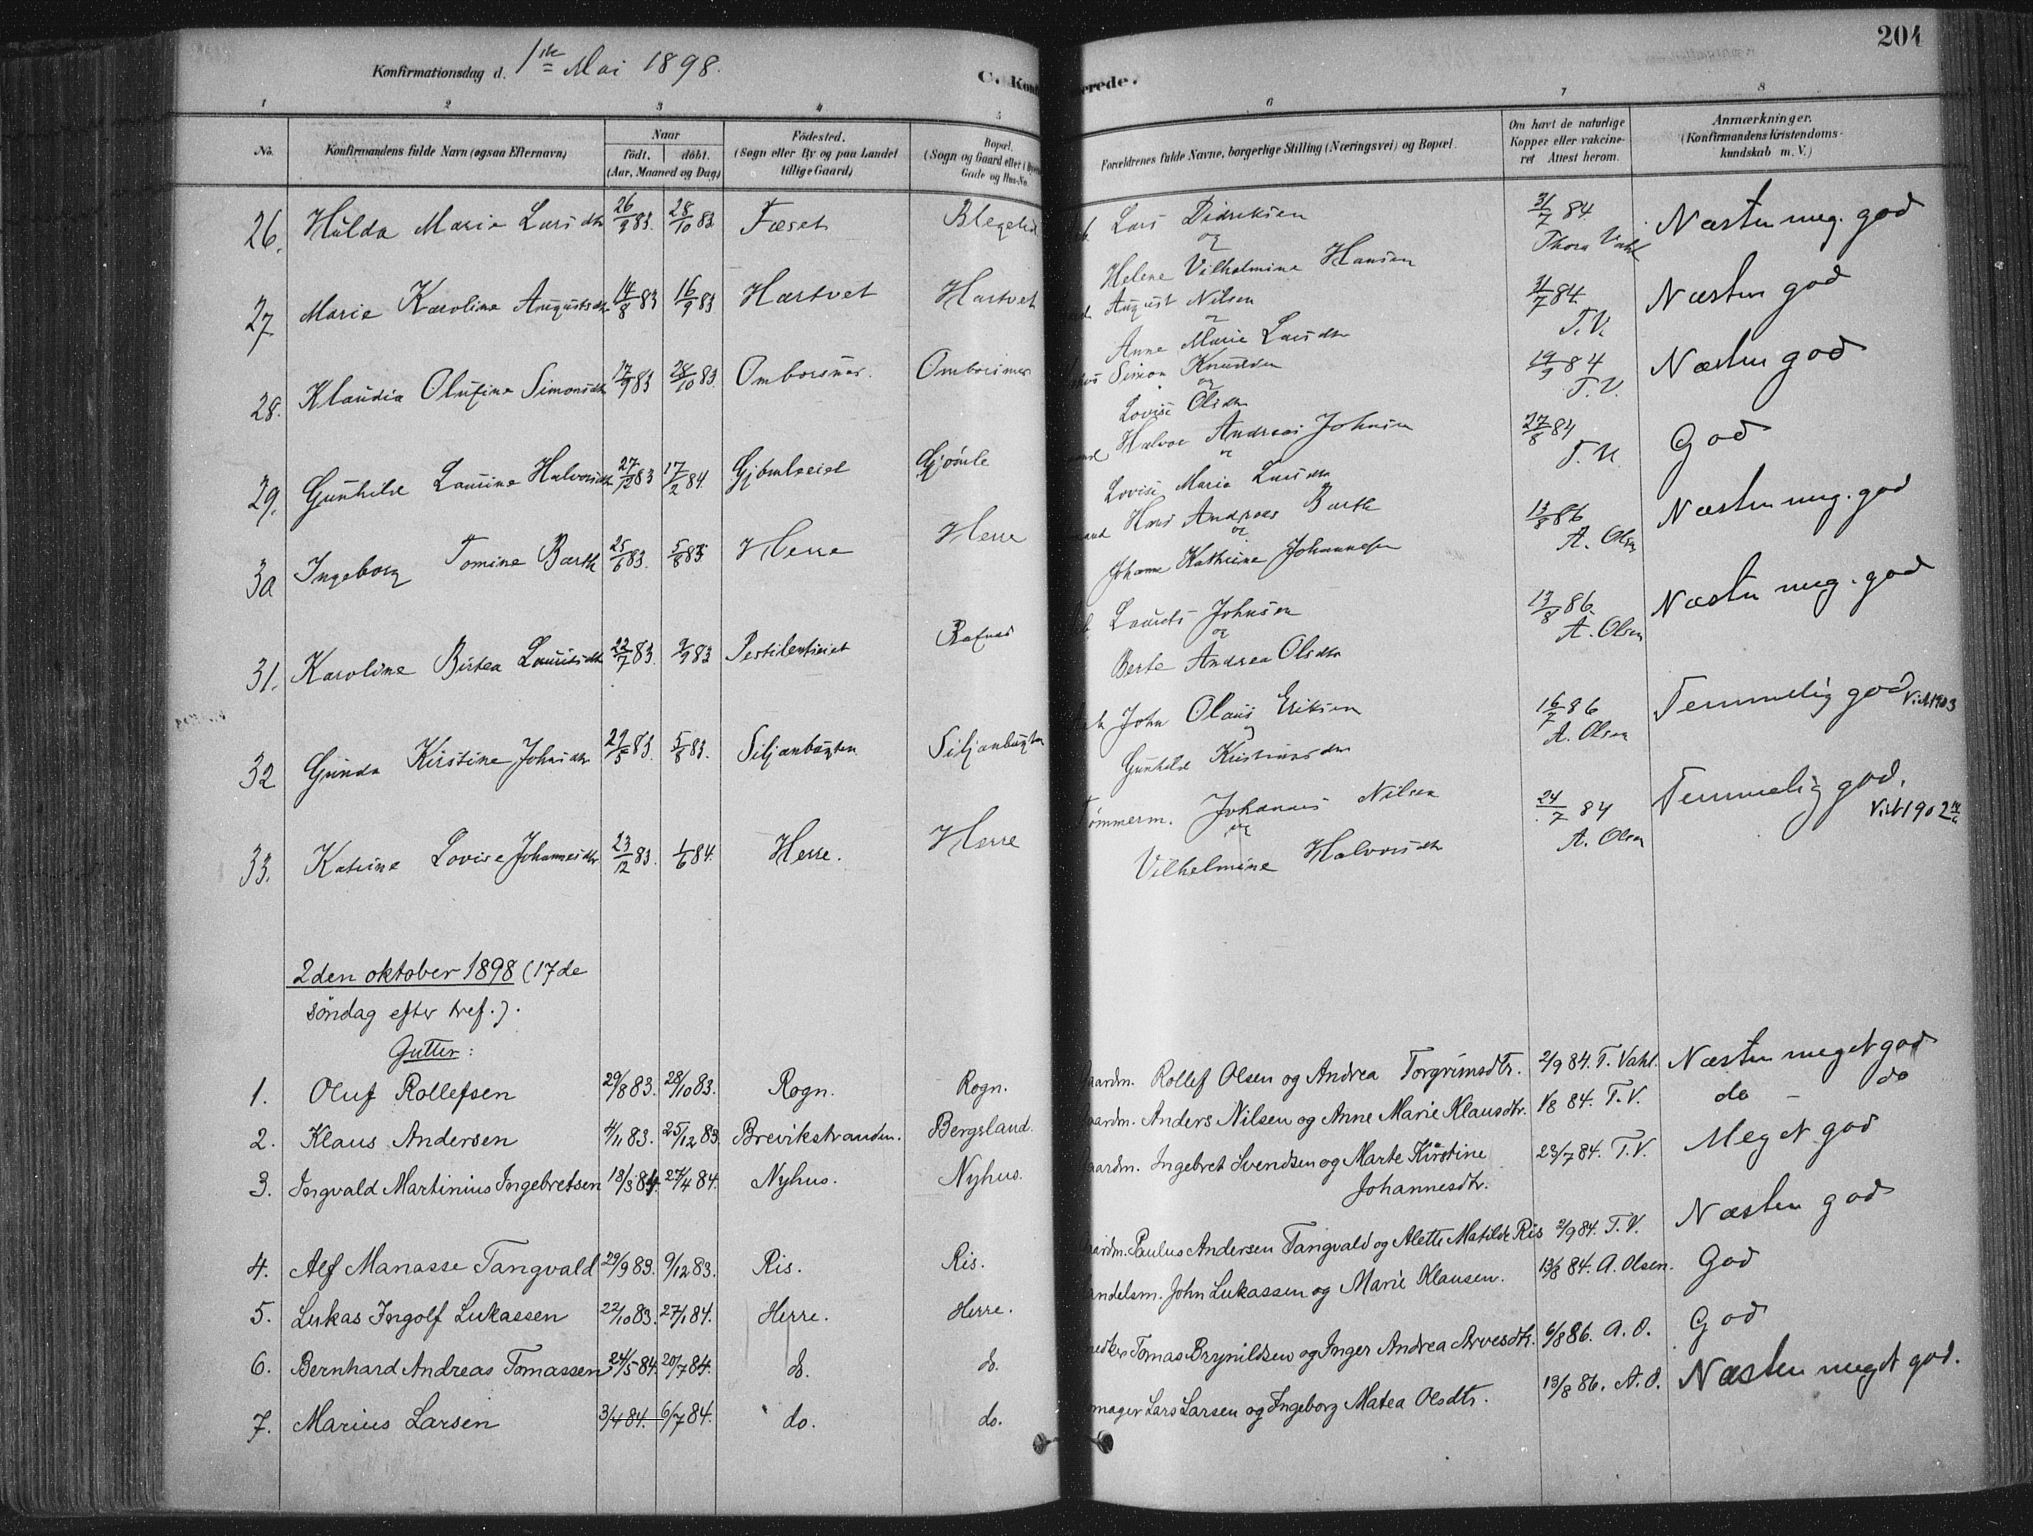 204
Konfirmationsdag d. 1ste Mai 1898.
C. Konf erede.
1 2 3 4 5 6 7 8
No. Konfirmandens fulde Navn (ogsaa Efternavn) Naar født. døbt. (Aar, Maaned og Dag) Fødested. (Sogn eller By og paa Landet tillige Gaard) Bopæl. (Sogn og Gaard eller i Byen Gade og Hus-No. Forældrenes fulde Navne, borgerlige Stilling (Næringsvei) og Bopæl. Om havt de naturlige Kopper eller vakcineret Attest herom. Anmærkninger. (Konfirmandens Kristendomskundskab m. V.)
26. Hulda Marie Larsdtr 26/9 83. 28/10 83 Fæset Lars Didriksen 31/7 84. Næsten meg. god
og Thora Vahl
Helene Vilhelmine Hansen
27 Marie Karoline Augustsdtr 14/8 83 16/9 83 Hæstvet Hæstvet August Nilsen 31/7 84. Næsten god
T.V.
Anne Marie Larsdtr
28. Klaudia Olufine Simonsdtr 17/9 83 28/10 83 Omborsnæs. Omborsnæs Simon Knudsen 19/9 84 Næsten god
og T.V.
Lovise Olsdtr
29. Gunhild Laurine Halvorsdtr 27/12 83 17/2 84. Gjømleeiet Gjømle Halvor Andreas Johnsen 27/8 84 God
T.V.
Lovise Marie Larsdtr
30 Ingeborg Tomine Barth 25/6 83. 5/8 83 Herre Herre Hans Andreas Barth 13/8 86 Næsten meg. god
og A. Olsen
Johanne Kathrine Johannesen
31. Karoline Birtea Lauritsdtr 22/7 83. 2/9 83 Pestilentieiet Rafnæs Laurits Johnsen 13/8 86. Næsten meg. god
og A. Olsen
Berte Andrea Olsdtr
32 Gunda Kirstine Johnsdtr 29/5 83. 5/8 83. Siljanbugten Siljanbugten John Olaus Eriksen 16/7 86 Temmelig god
A. Olsen
Gunhild Kristiansdtr
33. Katrine Lovise Johannesdtr 23/12 83. 1/6 84. Herre. Herre Tømmerm. Johannes Nilsen 24/7 84 Temmelig god.
og A. Olsen
Vilhelmine Halvorsdtr
2den oktober 1898 (17de
søndag efter tref.).
Gutter:
1. Oluf Rollefsen 29/8 83. 28/10 83. Rogn. Rogn. aardm. Rollef Olsen og Andrea Torgrimsdtr. 2/9 84. T. Vahl. Næsten meget god
2. Klaus Andersen 4/11 83. 25/12 83. Brevikstranden. Bergsland. aardm. Anders Nilsen og Anne Marie Klausdtr. 1/8 84. T.V. do - do
3. Ingvald Martinius Ingebretsen 13/3 84. 27/4 84. Nyhus. Nyhus. aardm. Ingebret Svendsen og Marte Kirstine 23/7 84. T.V. Meget god
Johannesdtr.
4. Alf Manasse Tangvald 29/9 83. 9/12 83. Ris. Ris. aardm. Paulus Andersen Tangvald og Alette Matilde Ris 2/9 84. T.V. Næsten god
5. Lukas Ingolf Lukassen 22/10 83. 27/1 84. Herre. Herre. andelsm. John Lukassen og Marie Klausen. 13/8 84. A. Olsen. God
6. Bernhard Andreas Tomassen 24/5 84. 20/7 84. do. do. nedker Tomas Brynildsen og Inger Andrea Arvesdtr. 6/8 86. A.O. God
7. Marius Larsen 3/4 84. 6/7 84. do. do. mager Lars Larsen og Ingeborg Matea Olsdtr. 13/8 86. A.O. Næsten meget god.